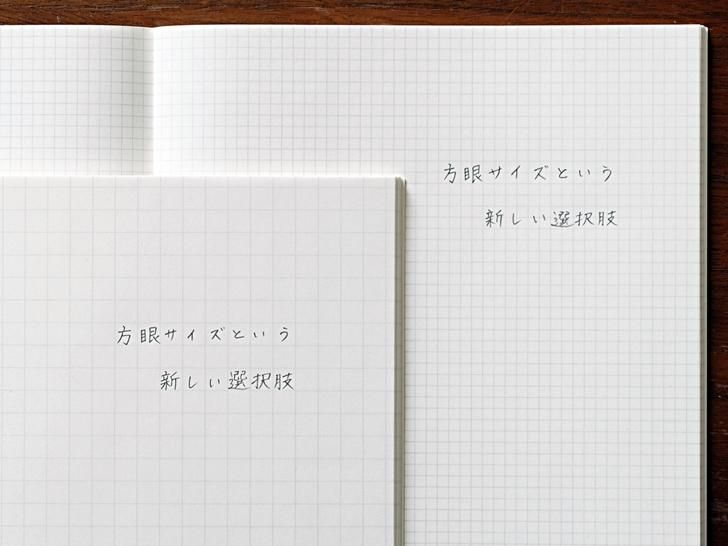 方眼サイズという
新しい選択肢
方眼サイズという
新しい選択肢